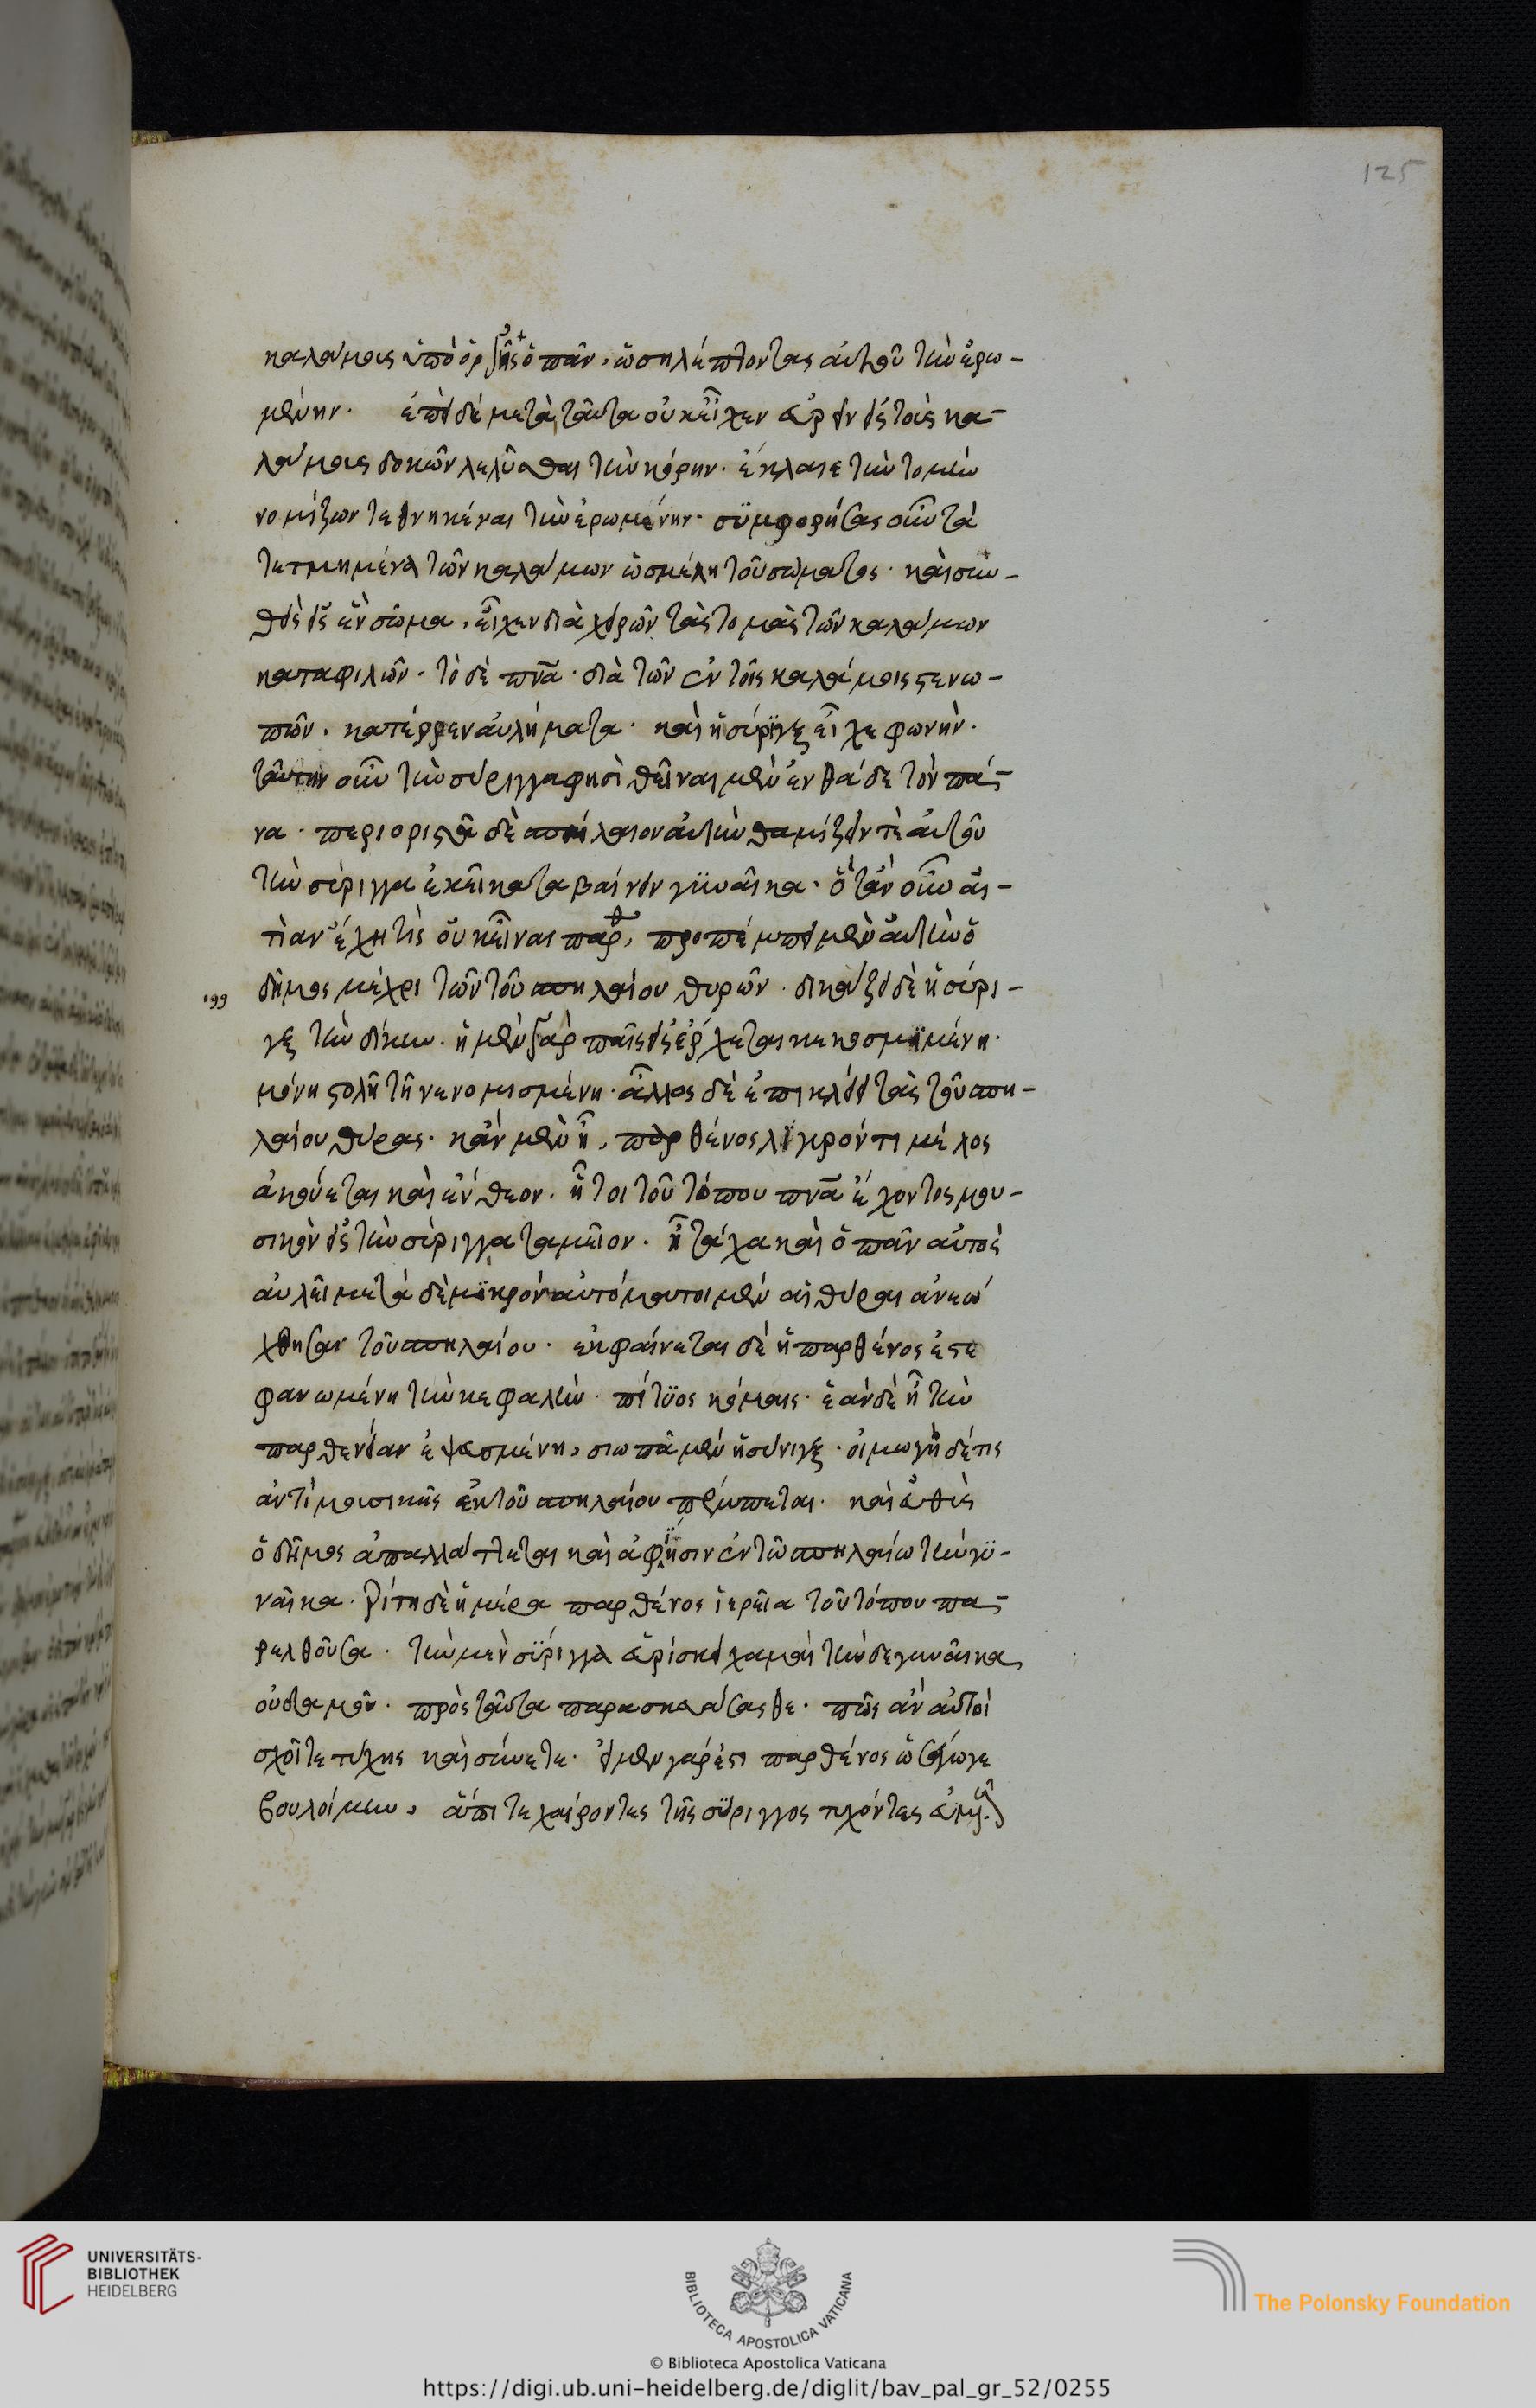 125
καλάμους ὑπὸ ὀργῆς ὁ πὰν, ὡς κλέπτοντας αὐτοῦ τὴν ἐρω-
μένην. ἐπεὶ δὲ μετὰ ταῦτα οὐκ εἶχεν εὑρεῖν εἰς τοὺς κα-
λάμους δοκῶν λελῦσθαι τὴν κόρην. ἔκλαιε τὴν τομὴν
νομίζων τεθνηκέναι τὴν ἐρωμένην. συμφορήσας οὖν τὰ
τετμημένα τῶν καλάμων ὡς μέλη τοῦ σώματος. καὶ συν-
θεὶς εἰς ἓν σῶμα, εἶχεν διὰ χειρῶν τὰς τομὰς τῶν καλάμων
καταφιλῶν. τὸ δὲ πνᾶ. διὰ τῶν ἐν τοῖς καλάμοις στενω-
πῶν. κατέρρεν αὐλήματα. καὶ ἡ σύριγξ εἶχε φωνὴν.
ταύτην οὖν τὴν σύριγγα φησὶ θεῖναι μὲν ἐνθάδε τὸν πᾶ-
να. περιορίσαι δὲ σπήλαιον αὐτὴν θαμίζειν τὲ αὐτοῦ
τὴν σύριγγα ἐκεῖ καταβαίνειν γυναῖκα. ὅταν οὖν αἰ-
τίαν ἔχῃ τὶς οὐκ εἶναι παρθ, προπέμπει μὲν αὐτὴν ὁ
δῆμος μέχρι τῶν τοῦ σπηλαίου θυρῶν. δικάζει δὲ ἡ σύρι-
γξ τὴν δίκην. ἡ μὲν γὰρ παῖς εἰσέρχεται κεκοσμημένη.
μόνη στολῇ τῇ νενομισμένῃ. ἄλλος δὲ ἐπικλείει τὰς τοῦ σπη-
λαίου θύρας. κἂν μὲν ᾖ, παρθένος λιγυρόν τι μέλος
ἀκούεται καὶ ἔνθεον. ἤτοι τοῦ τόπου πνᾶ ἔχοντος μου-
σικὸν εἰς τὴν σύριγγα ταμεῖον. ἢ τάχα καὶ ὁ πὰν αὐτὸς
αὐλεῖ μετὰ δὲ μικρὸν αὐτόματοι μὲν αἱ θύραι ἀνεώ
χθησαν τοῦ σπηλαίου. ἐκφαίνεται δὲ ἡ παρθένος ἐστε
φανωμένη τὴν κεφαλὴν. πίτυος κόμαις. ἐὰν δὲ ᾖ τὴν
παρθενίαν ἐψευσμένη, σιωπᾷ μὲν ἡ σύριγξ. οἰμωγὴ δέ τις
ἀντὶ μουσικῆς ἐκ τοῦ σπηλαίου πέμπεται. καὶ εὐθὺς
ὁ δῆμος ἀπαλλάττεται καὶ ἀφίησιν ἐν τῶ σπηλαίω τὴν γυ-
ναῖκα. τρίτη δὲ ἡμέρα παρθένος ἱερεῖα τοῦ τόπου πα-
ρελθοῦσα. τὴν μὲν σύριγγα εὑρίσκει χαμαὶ τὴν δε γυναῖκα
οὐδαμοῦ. πρὸς ταῦτα παρασκευάσασθε. πῶς ἂν αὐτοὶ
σχοῖτε τύχης καὶ σύνετε. εἰ μὲν γάρ ἐστι παρθένος ὡς ἔγωγε
βουλοίμην, ἄπιτε χαίροντες τῆς σύριγγος τυχόντες εὐμ.
UNIVERSITÄTS-
BIBLIOTHEK
HEIDELBERG
BIBLIOTECA APOSTOLICA VATICANA
© Biblioteca Apostolica Vaticana
The Polonsky Foundation
https://digi.ub.uni-heidelberg.de/diglit/bav_pal_gr_52/0255